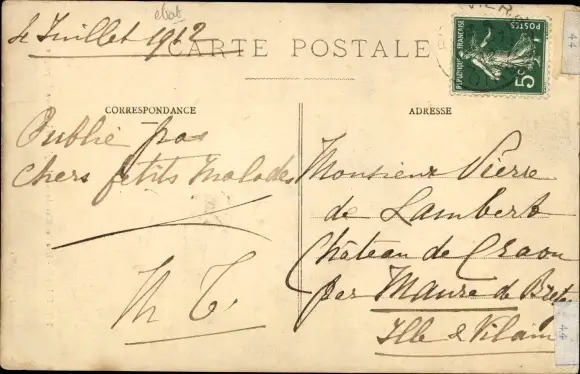 4 Juillet 1912
CARTE POSTALE
REPUBLIQUE FRANÇAISE
POSTES
5c
44
CORRESPONDANCE
Oublie pas
Chers petits malades
M T.
ADRESSE
Monsieur Pierre
de Lambert
Château de Craon
par Maure de Bret
Ille & Vilaine
44